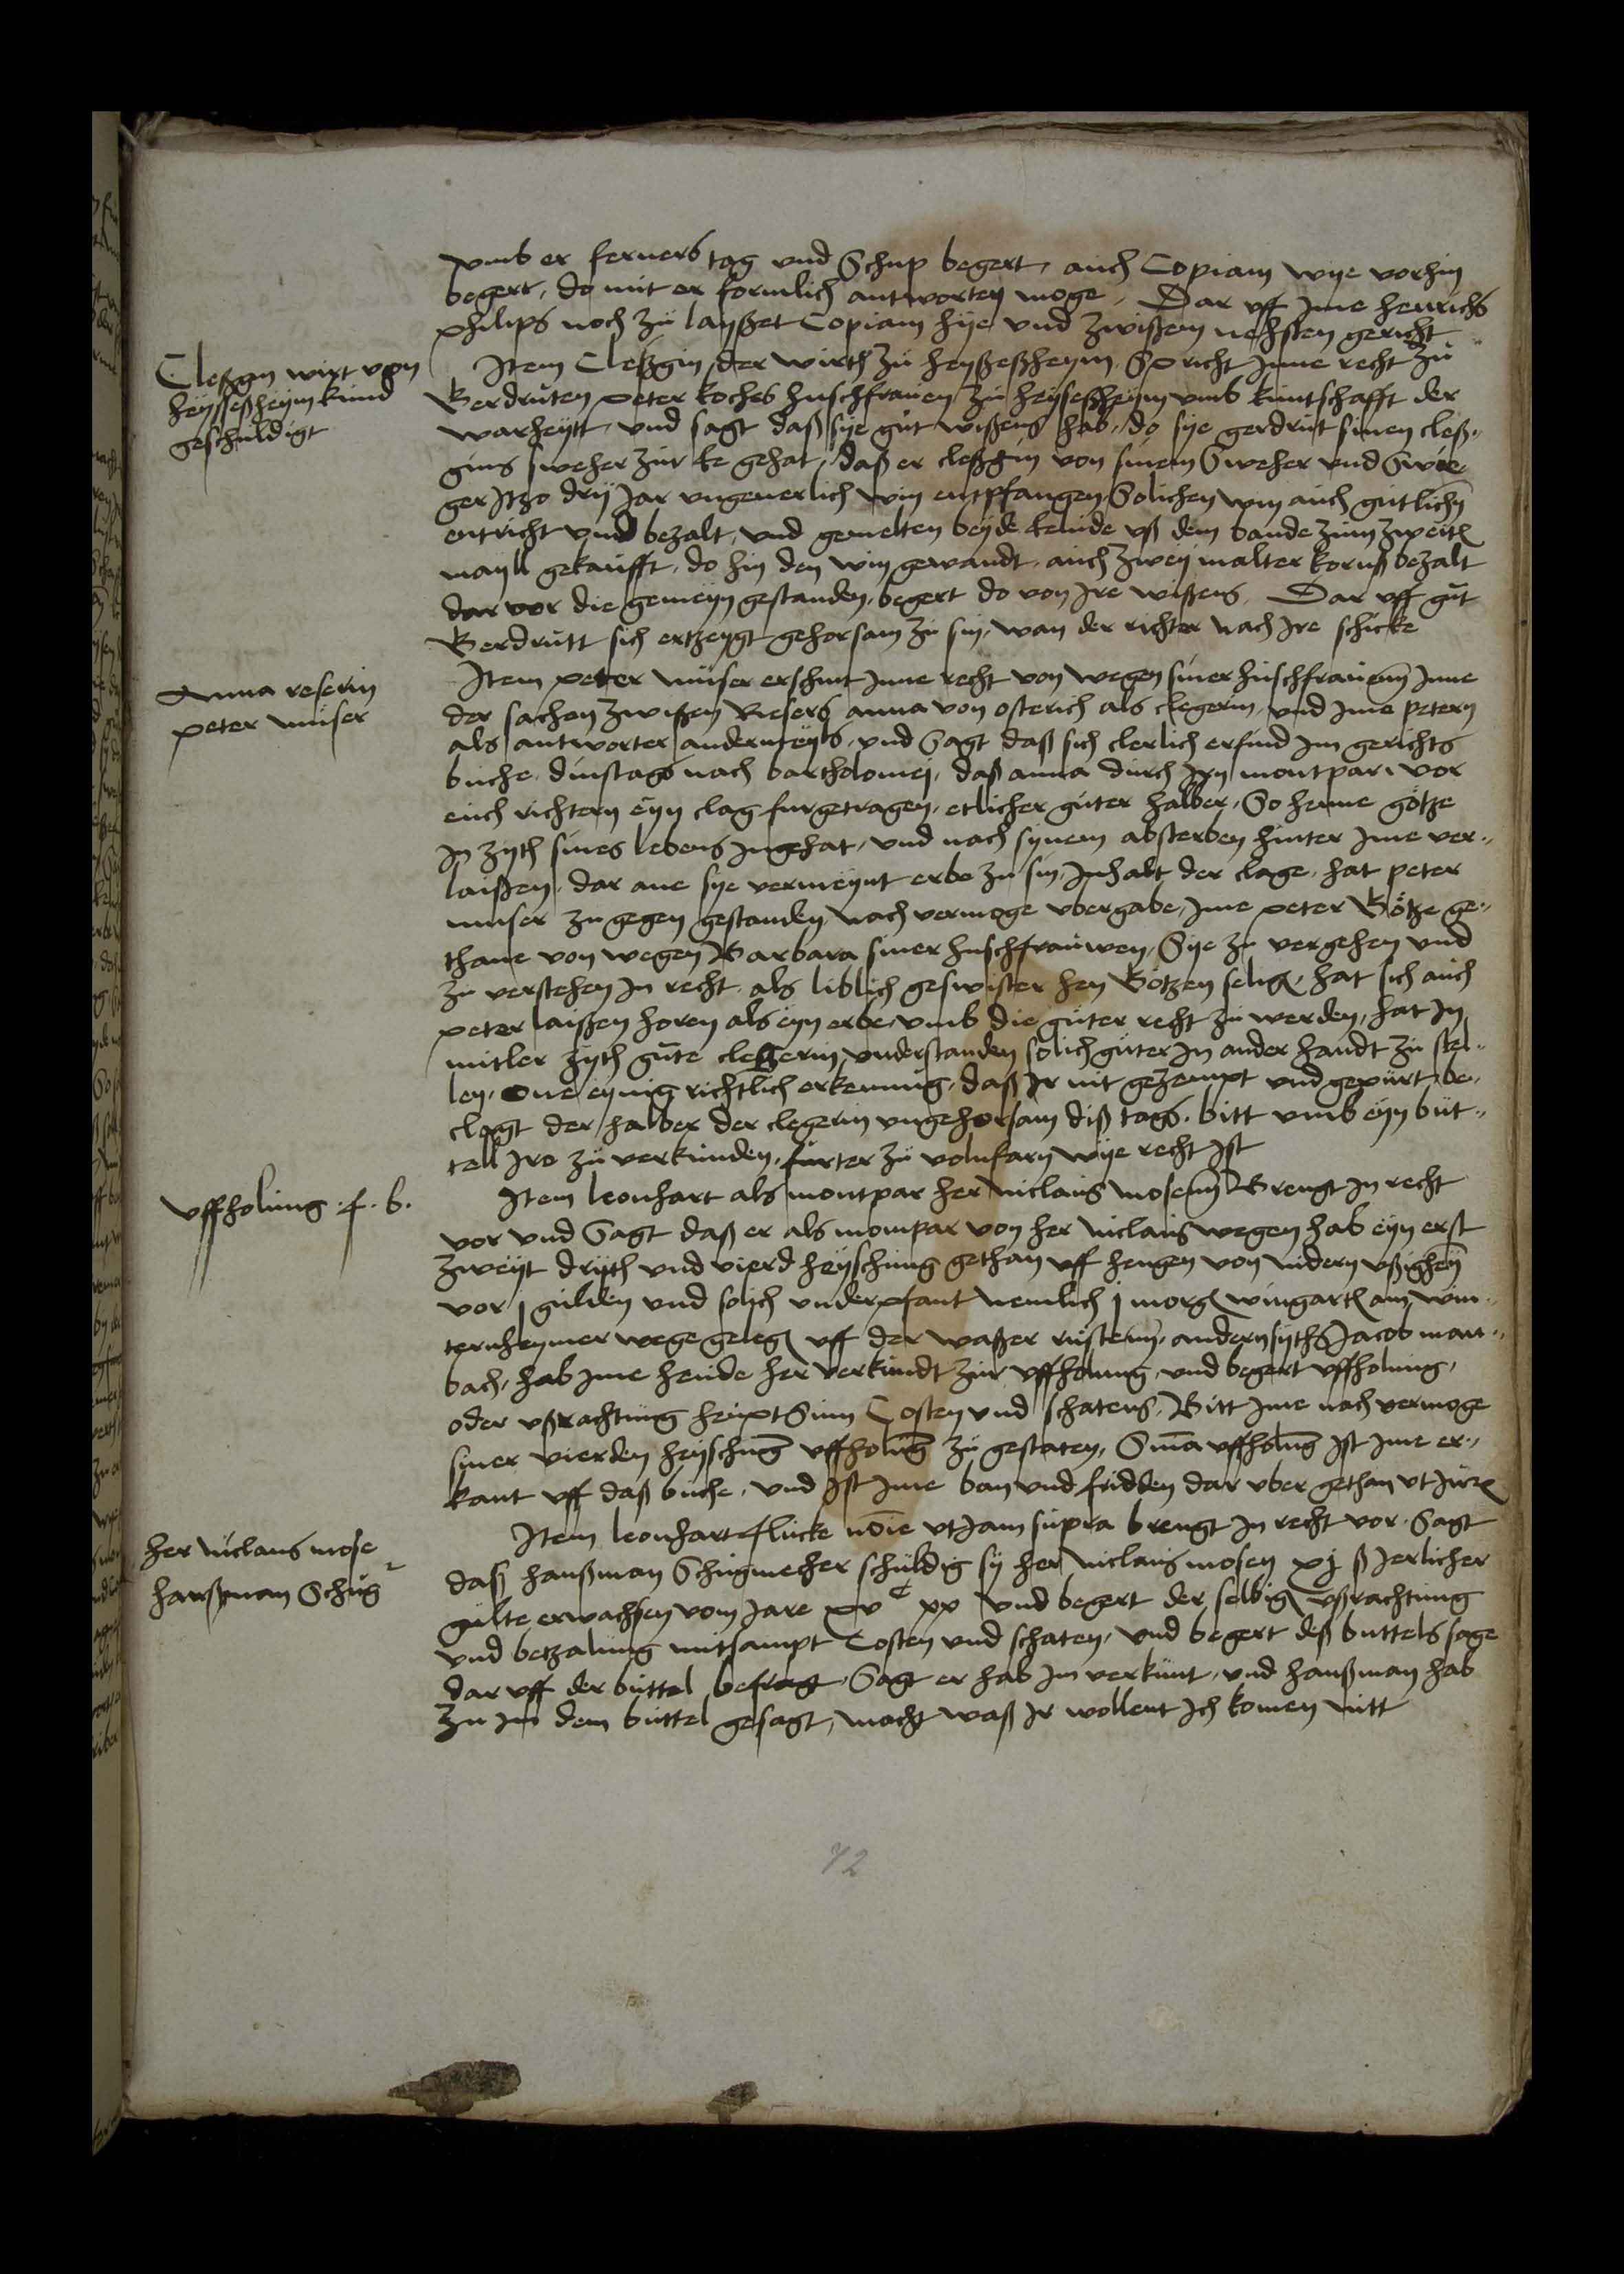 vmb er ferners tag vnd Schup begert, auch Copiam wye vorhin
begert, do mit er formlich antworten moge, Dar vff ime henrichs
philips noch zu layßet Copiam hye vnd zwißem nehsten gericht
Cleßgin wirt von
heyseßheym kund
geschuldigt
Item Cleßgin der wirth zu heyßeßheym Spricht inne recht zu
Gerdruten peter koches huschfrauen zu heyseßheym vmb kuntschafft der
warheytt, vnd sagt daß sye gut wißens hab, do sye gerdrut sinen cleß„
gins sweher zur ee gehat, daß er cleßgin von sinem Sweher vnd Swie„
ger itzo dry Jar vngeuerlich win entpfangen Solichen win auch gutlichn
entricht vnd bezalt, vnd gemelten beyde leude vß dem bande zum zweiten
mayll gekaufft, do hin den win gewandt, auch zwey malter kornß bezalt
dar vor die gemeyn gestanden, begert do von ire wißens, Dar vff gut
Gerdrutt sich ertzeygt gehorsam zu sin, wan der richter nach ire schicke
Anna reserin
peter muser
Item peter muser erschint inne recht von wegen siner huschfrauenn inne
der sachen zwißen Resers anna von osterich als clegerin, vnd ime petern
als antworter anderneyls, vnd Sagt daß sich clerlich erfind im gerichts
buche, dinstags nach bartholomej, daß anna durch irn montpar, vor
euch richtern eyn clag furgetragen, etlicher guter halber, So henne götze
in zyth sines lebens ingehat, vnd nach synem absterben hinter ime ver„
laißen, dar ane sye vermeynt erbe zu sin, Inhalt der clage, hat peter
muser zu gegen gestanden nach vermoge vbergabe, ime peter Götze ge„
thane von wegen Barbara siner huschfrauwen, Sye zu vergehen vnd
zu verstehen in recht, als liblich geswister hen Götzen selig, hat sich auch
peter laißen horen als eyn erbe, vmb die guter recht zu werden, hat in
mitler zyth gute clegerin vnderstanden solich guter in ander handt zu stel„
len, one eynig richtlich erkennung, daß ir nit gezempt vnd gepurt, be„
clagt der halber der clegerin vngehorsam diß tags, bitt vmb eyn büt„
tell ire zu verkunden, furter zu volnfarn wye recht ist
vffholung .f. b.
Item leonhart als montpar her niclaus mosenn Brengt in recht
vor vnd Sagt daß er als mompar von her niclaus wegen hab eyn erst
zweyt dryth vnd vierd heyschung gethan vff hengen von nidern vßigheyn
vor j gulden vnd solich vnderpfant nemlich j morgen wingarten am win„
ternheymer wege gelegen vff der waßer rustenn, andersyths Jacob mon„
bach, hab ime heude her verkundt zur vffholung, vnd begert vffholung,
oder vßrachtung heupt Sum Costen vnd schatens, Bitt ime nach vermoge
siner vierden heyschung vffholung zu gestaten, Sma vffholung ist ime er„
kant vff daß buche, vnd ist ime ban vnd fridden dar vber gethan vt iuris
her niclaus mose
hanßman Schug
Item leonhart flucke noie vt iam supra brengt in recht vor, Sagt
daß hanßman Schugmecher schuldig sy her niclaus mosen xj ß ierlicher
gulte erwachsen vom Jare xvᶜ xx vnd begert der selbigen vßrachtung
vnd betzalung mitsampt Costen vnd schaten, vnd begert deß buttels sage
dar vff der buttel befragt, Sagt er hab im verkunt, vnd hanßman hab
zu im dem buttel gesagt, macht waß ir wollent ich komen nitt
72